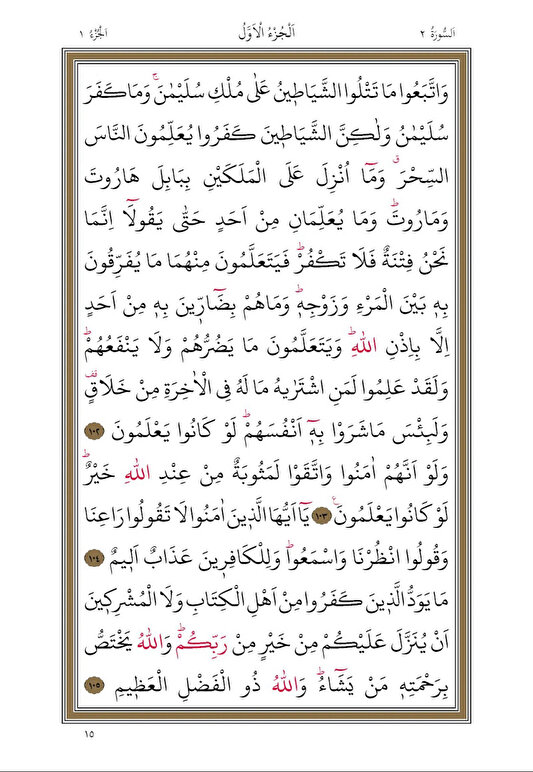 اَلسُّورَةُ ٢ اَلْجُزْءُ الْاَوَّلُ اَلْجُزْءُ ١
وَاتَّبَعُوا مَا تَتْلُوا الشَّيَاط۪ينُ عَلٰى مُلْكِ سُلَيْمٰنَۚ وَمَا كَفَرَ
سُلَيْمٰنُ وَلٰكِنَّ الشَّيَاط۪ينَ كَفَرُوا يُعَلِّمُونَ النَّاسَ
السِّحْرَۗ وَمَٓا اُنْزِلَ عَلَى الْمَلَكَيْنِ بِبَابِلَ هَارُوتَ
وَمَارُوتَۜ وَمَا يُعَلِّمَانِ مِنْ اَحَدٍ حَتّٰى يَقُولَٓا اِنَّمَا
نَحْنُ فِتْنَةٌ فَلَا تَكْفُرْۜ فَيَتَعَلَّمُونَ مِنْهُمَا مَا يُفَرِّقُونَ
بِه۪ بَيْنَ الْمَرْءِ وَزَوْجِه۪ۜ وَمَا هُمْ بِضَٓارّ۪ينَ بِه۪ مِنْ اَحَدٍ
اِلَّا بِاِذْنِ اللّٰهِۜ وَيَتَعَلَّمُونَ مَا يَضُرُّهُمْ وَلَا يَنْفَعُهُمْۜ
وَلَقَدْ عَلِمُوا لَمَنِ اشْتَرٰيهُ مَا لَهُ فِي الْاٰخِرَةِ مِنْ خَلَاقٍۜ
وَلَبِئْسَ مَا شَرَوْا بِه۪ٓ اَنْفُسَهُمْۜ لَوْ كَانُوا يَعْلَمُونَ ١٠٢
وَلَوْ اَنَّهُمْ اٰمَنُوا وَاتَّقَوْا لَمَثُوبَةٌ مِنْ عِنْدِ اللّٰهِ خَيْرٌۜ
لَوْ كَانُوا يَعْلَمُونَ۟ ١٠٣ يَٓا اَيُّهَا الَّذ۪ينَ اٰمَنُوا لَا تَقُولُوا رَاعِنَا
وَقُولُوا انْظُرْنَا وَاسْمَعُواۜ وَلِلْكَافِر۪ينَ عَذَابٌ اَل۪يمٌ ١٠٤
مَا يَوَدُّ الَّذ۪ينَ كَفَرُوا مِنْ اَهْلِ الْكِتَابِ وَلَا الْمُشْرِك۪ينَ
اَنْ يُنَزَّلَ عَلَيْكُمْ مِنْ خَيْرٍ مِنْ رَبِّكُمْۜ وَاللّٰهُ يَخْتَصُّ
بِرَحْمَتِه۪ مَنْ يَشَٓاءُۜ وَاللّٰهُ ذُو الْفَضْلِ الْعَظ۪يمِ ١٠٥
١٥